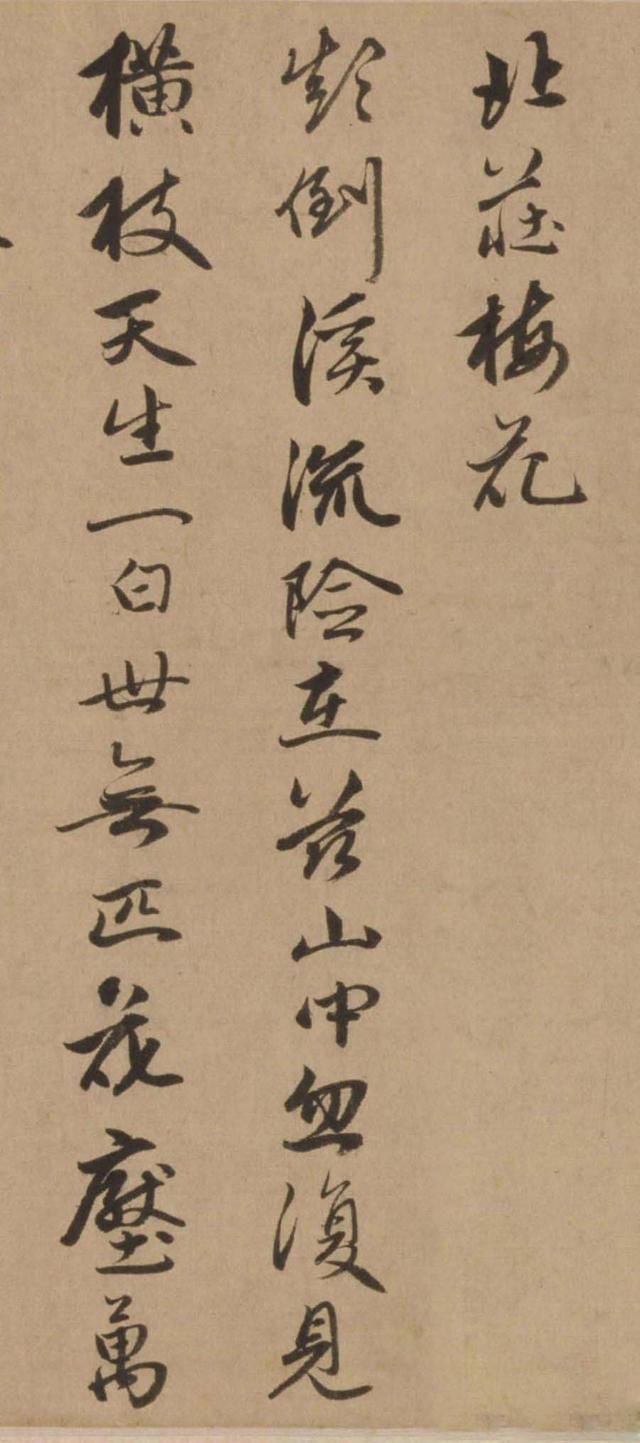 北莊梅花
彭倒溪流險在茲山中忽復見
橫枝天生一白世無匹花壓萬